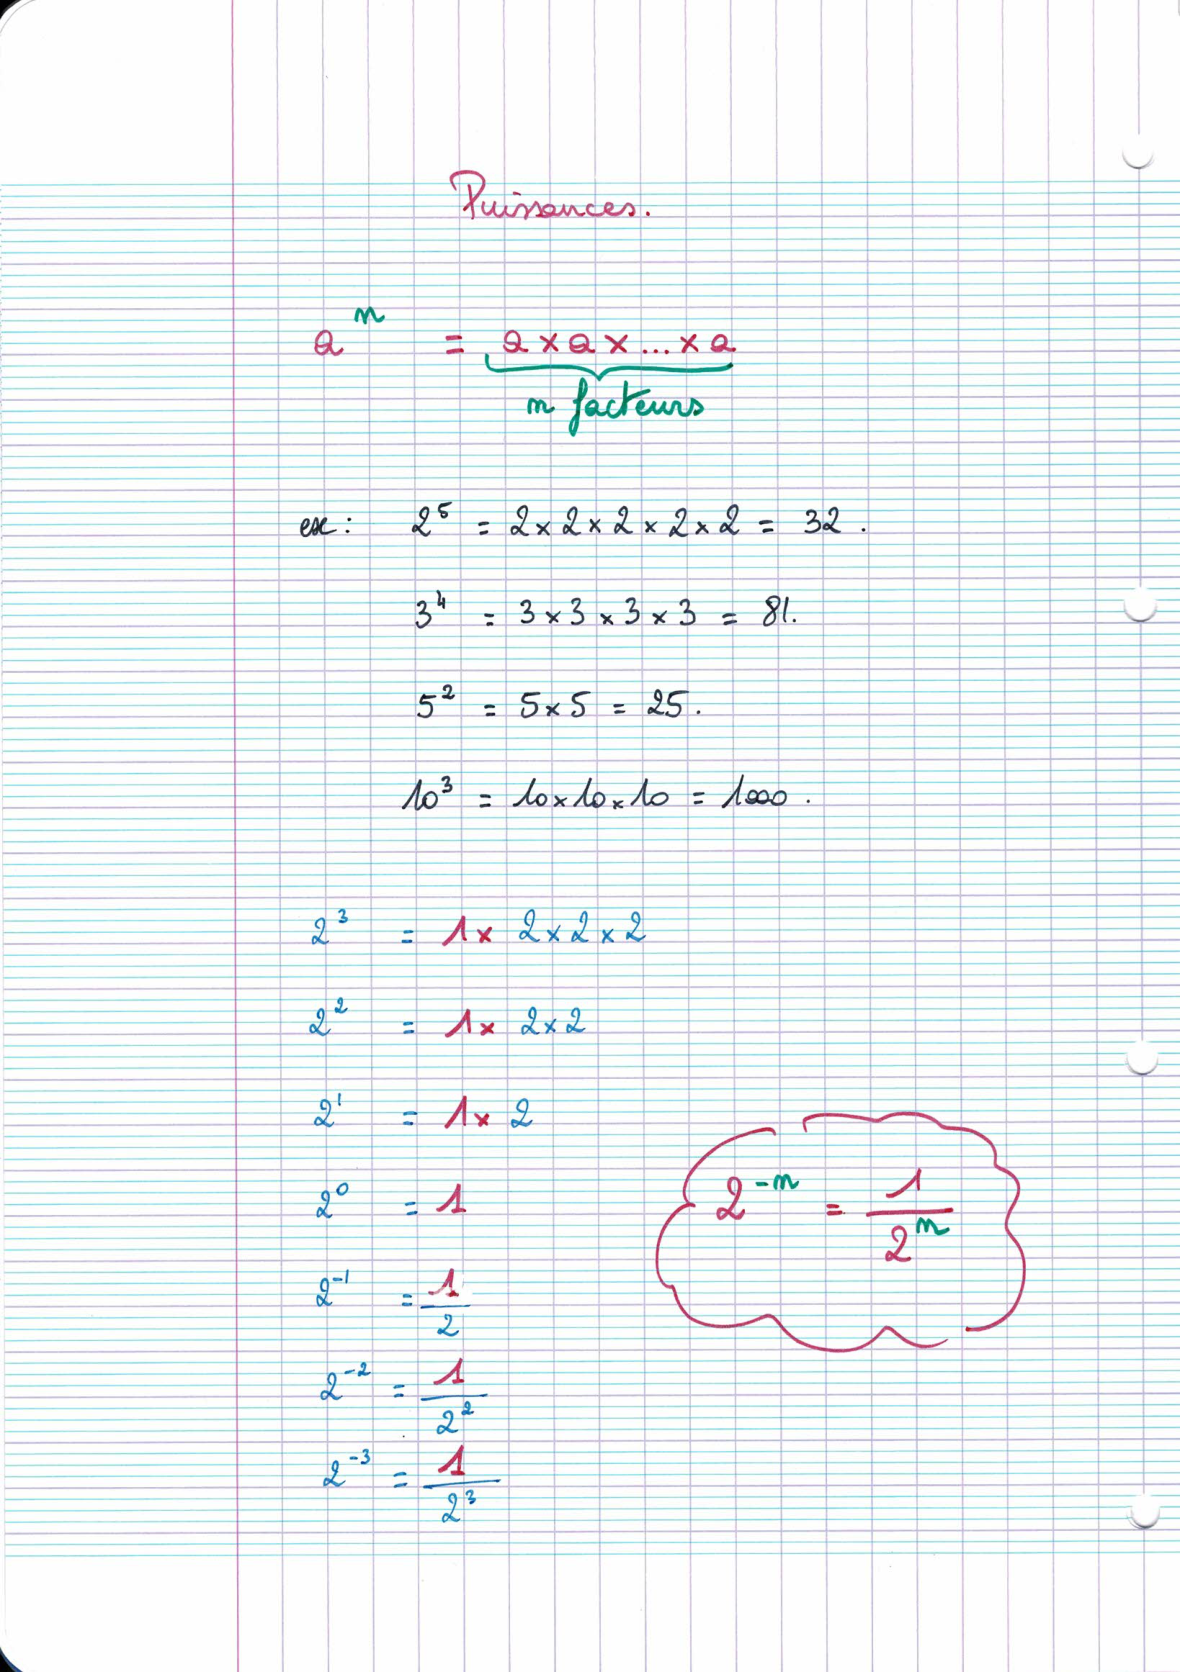 Puissances.
aⁿ = a × a × ... × a
n facteurs
ex : 2⁵ = 2 × 2 × 2 × 2 × 2 = 32 .
3⁴ = 3 × 3 × 3 × 3 = 81.
5² = 5 × 5 = 25 .
10³ = 10 × 10 × 10 = 1000 .
2³ = 1 × 2 × 2 × 2
2² = 1 × 2 × 2
2¹ = 1 × 2
2⁰ = 1
2⁻ⁿ = 1/2ⁿ
2⁻¹ = 1/2
2⁻² = 1/2²
2⁻³ = 1/2³